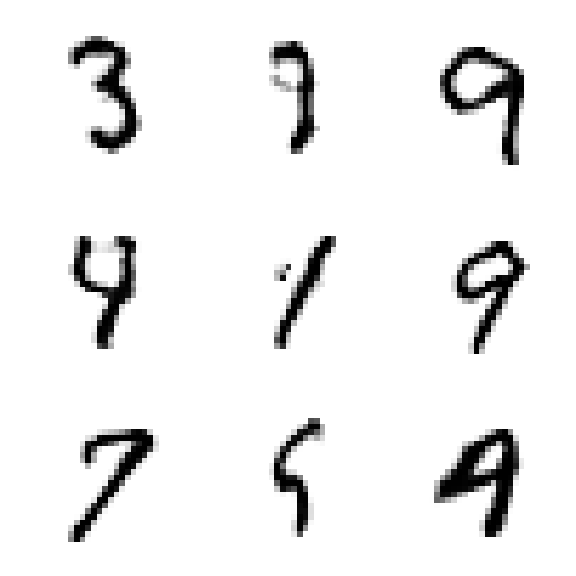 3 9 9
4 1 9
7 5 9